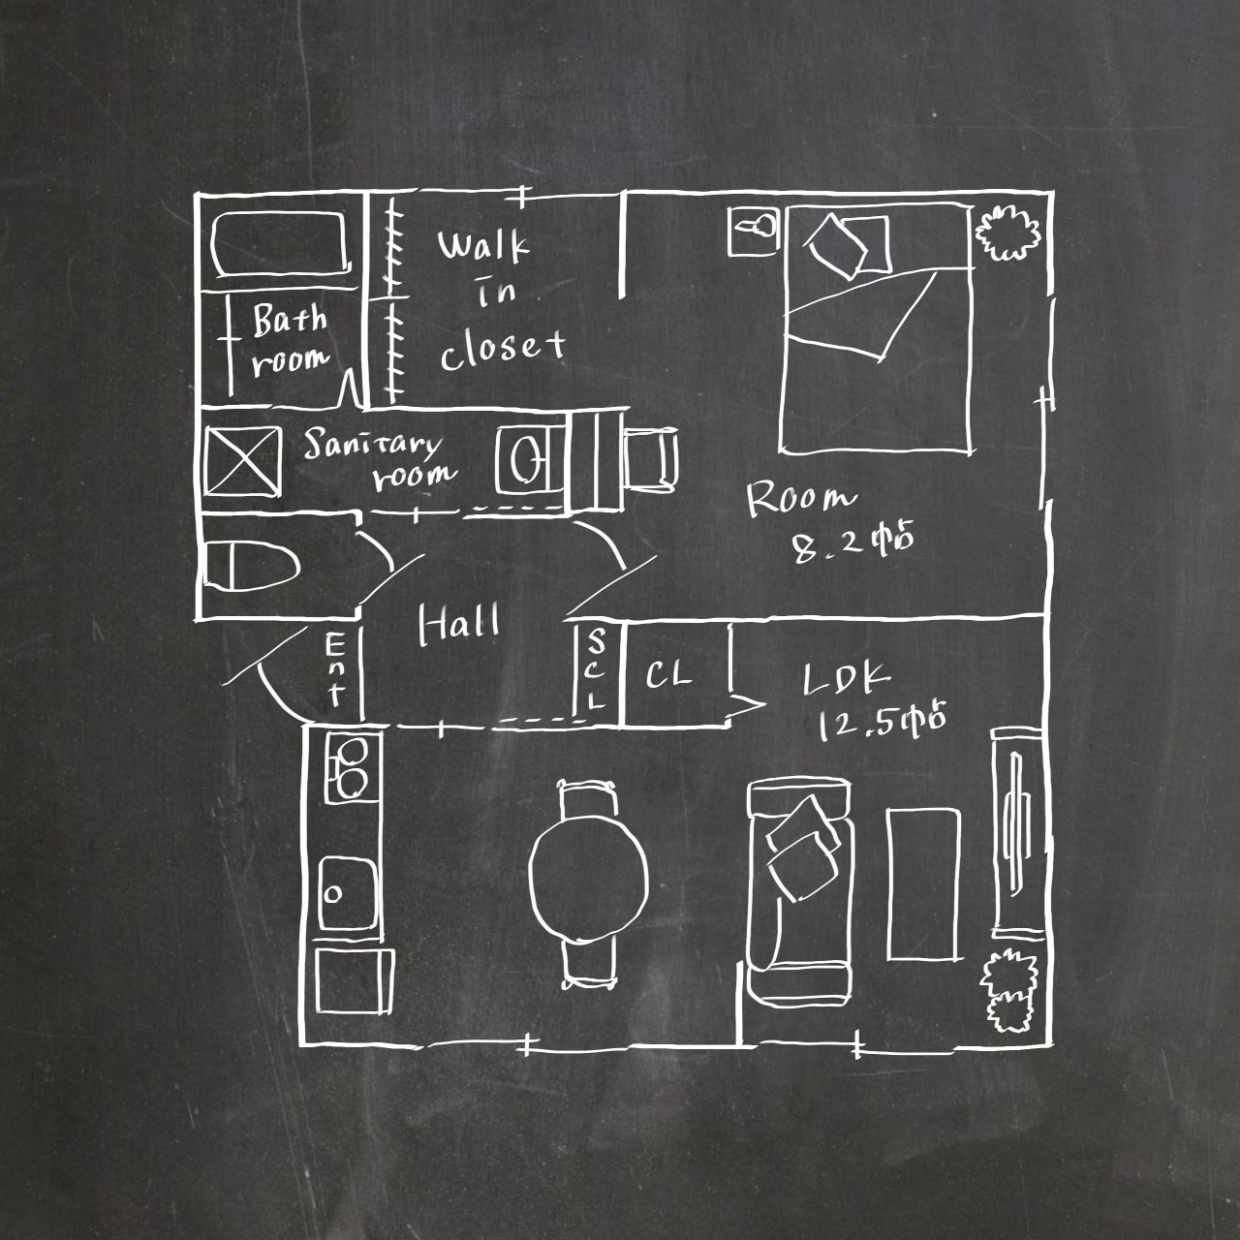 Walk
in
closet
Bath
room
Sanitary
room
Room
8.2帖
Hall
Ent
SCL
CL
LDK
12.5帖